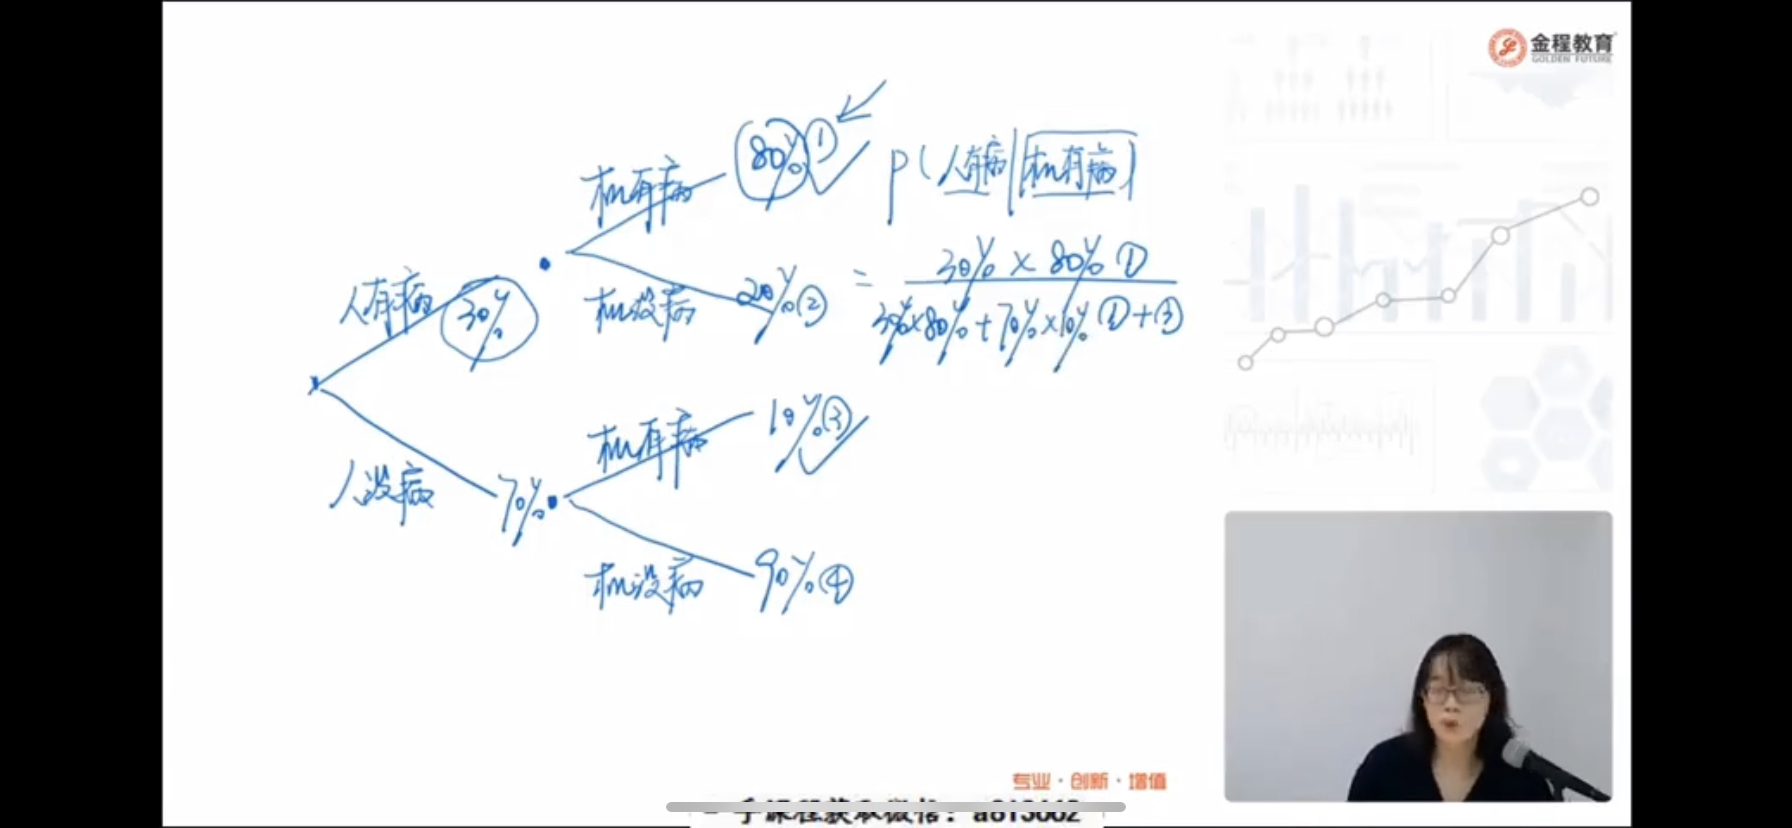 金程教育
GOLDEN FUTURE
80% ①
机有病
P(人有病|机有病)
人有病 30%
机没病 20% ②
= 30% × 80% ①
30%×80% + 70%×10% ①+③
机有病 10% ③
人没病 70%
机没病 90% ④
专业·创新·增值